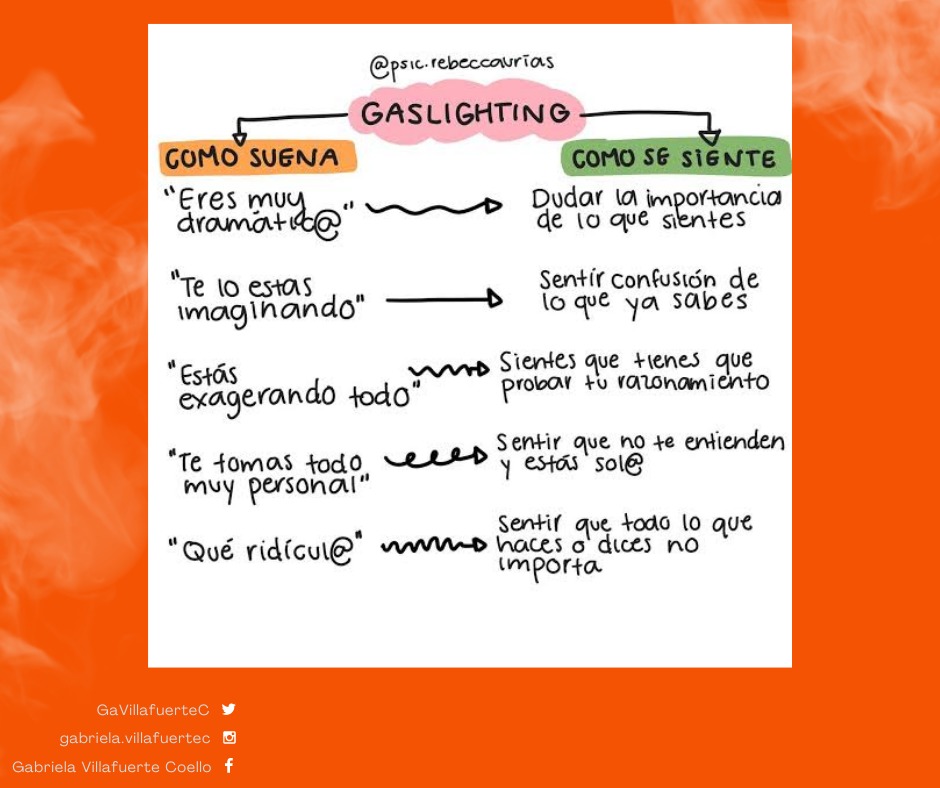 @psic.rebeccaurias
GASLIGHTING
COMO SUENA
COMO SE SIENTE
"Eres muy
dramátic@"
Dudar la importancia
de lo que sientes
"Te lo estas
imaginando"
Sentir confusión de
lo que ya sabes
"Estás
exagerando todo"
Sientes que tienes que
probar tu razonamiento
"Te tomas todo
muy personal"
Sentir que no te entienden
y estás sol@
"Qué ridícul@"
Sentir que todo lo que
haces o dices no
importa
GaVillafuerteC
gabriela.villafuertec
Gabriela Villafuerte Coello